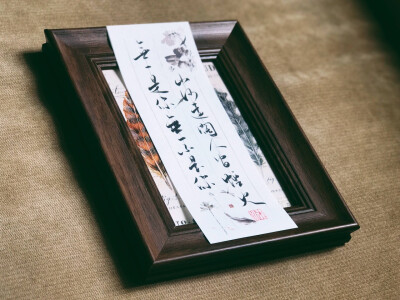 山河远阔人间烟火
无一是你无一不是你